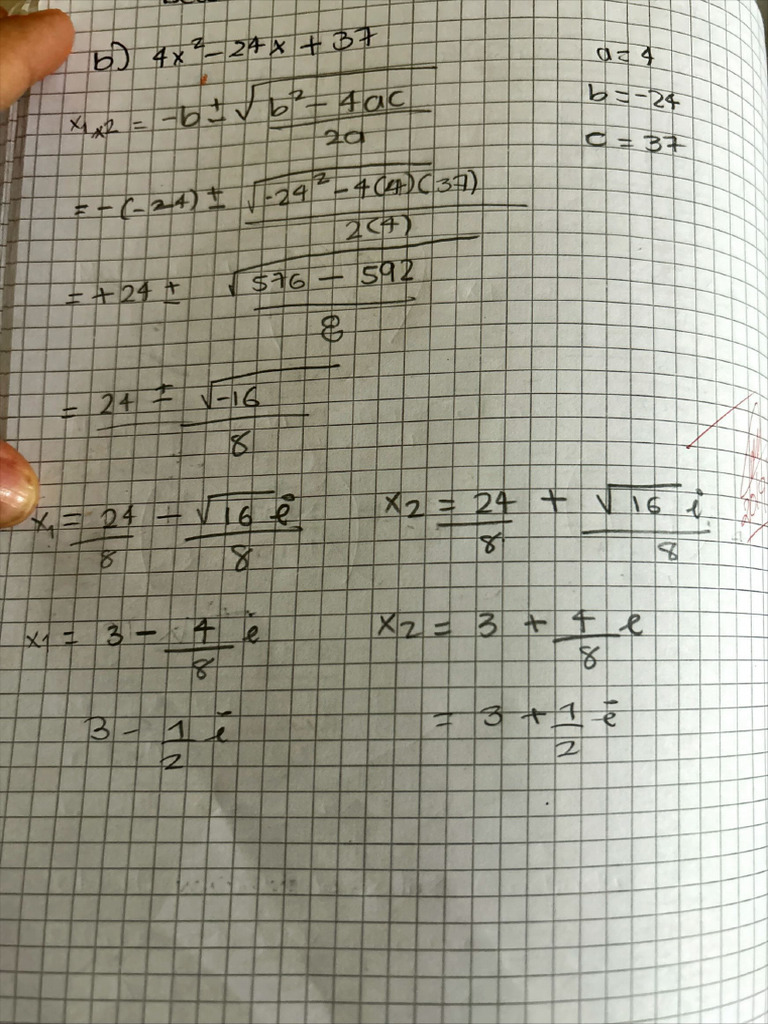 b) 4x² - 24x + 37
a = 4
b = -24
c = 37
x₁,x₂ = -b ± √b² - 4ac / 2a
= -(-24) ± √-24² - 4(4)(37) / 2(4)
= +24 ± √576 - 592 / 8
= 24 ± √-16 / 8
x₁ = 24/8 - √16 i/8
x₂ = 24/8 + √16 i/8
x₁ = 3 - 4/8 i
x₂ = 3 + 4/8 i
3 - 1/2 i
= 3 + 1/2 i